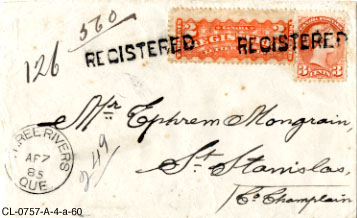 560
126
REGISTERED
REGISTERED
CANADA
2 REGISTERED 2
3 CENTS 3
Mr Ephrem Mongrain
St. Stanislas,
Co. Champlain
249
THREE RIVERS
AP 7
85
QUE
CL-0757-A-4-a-60